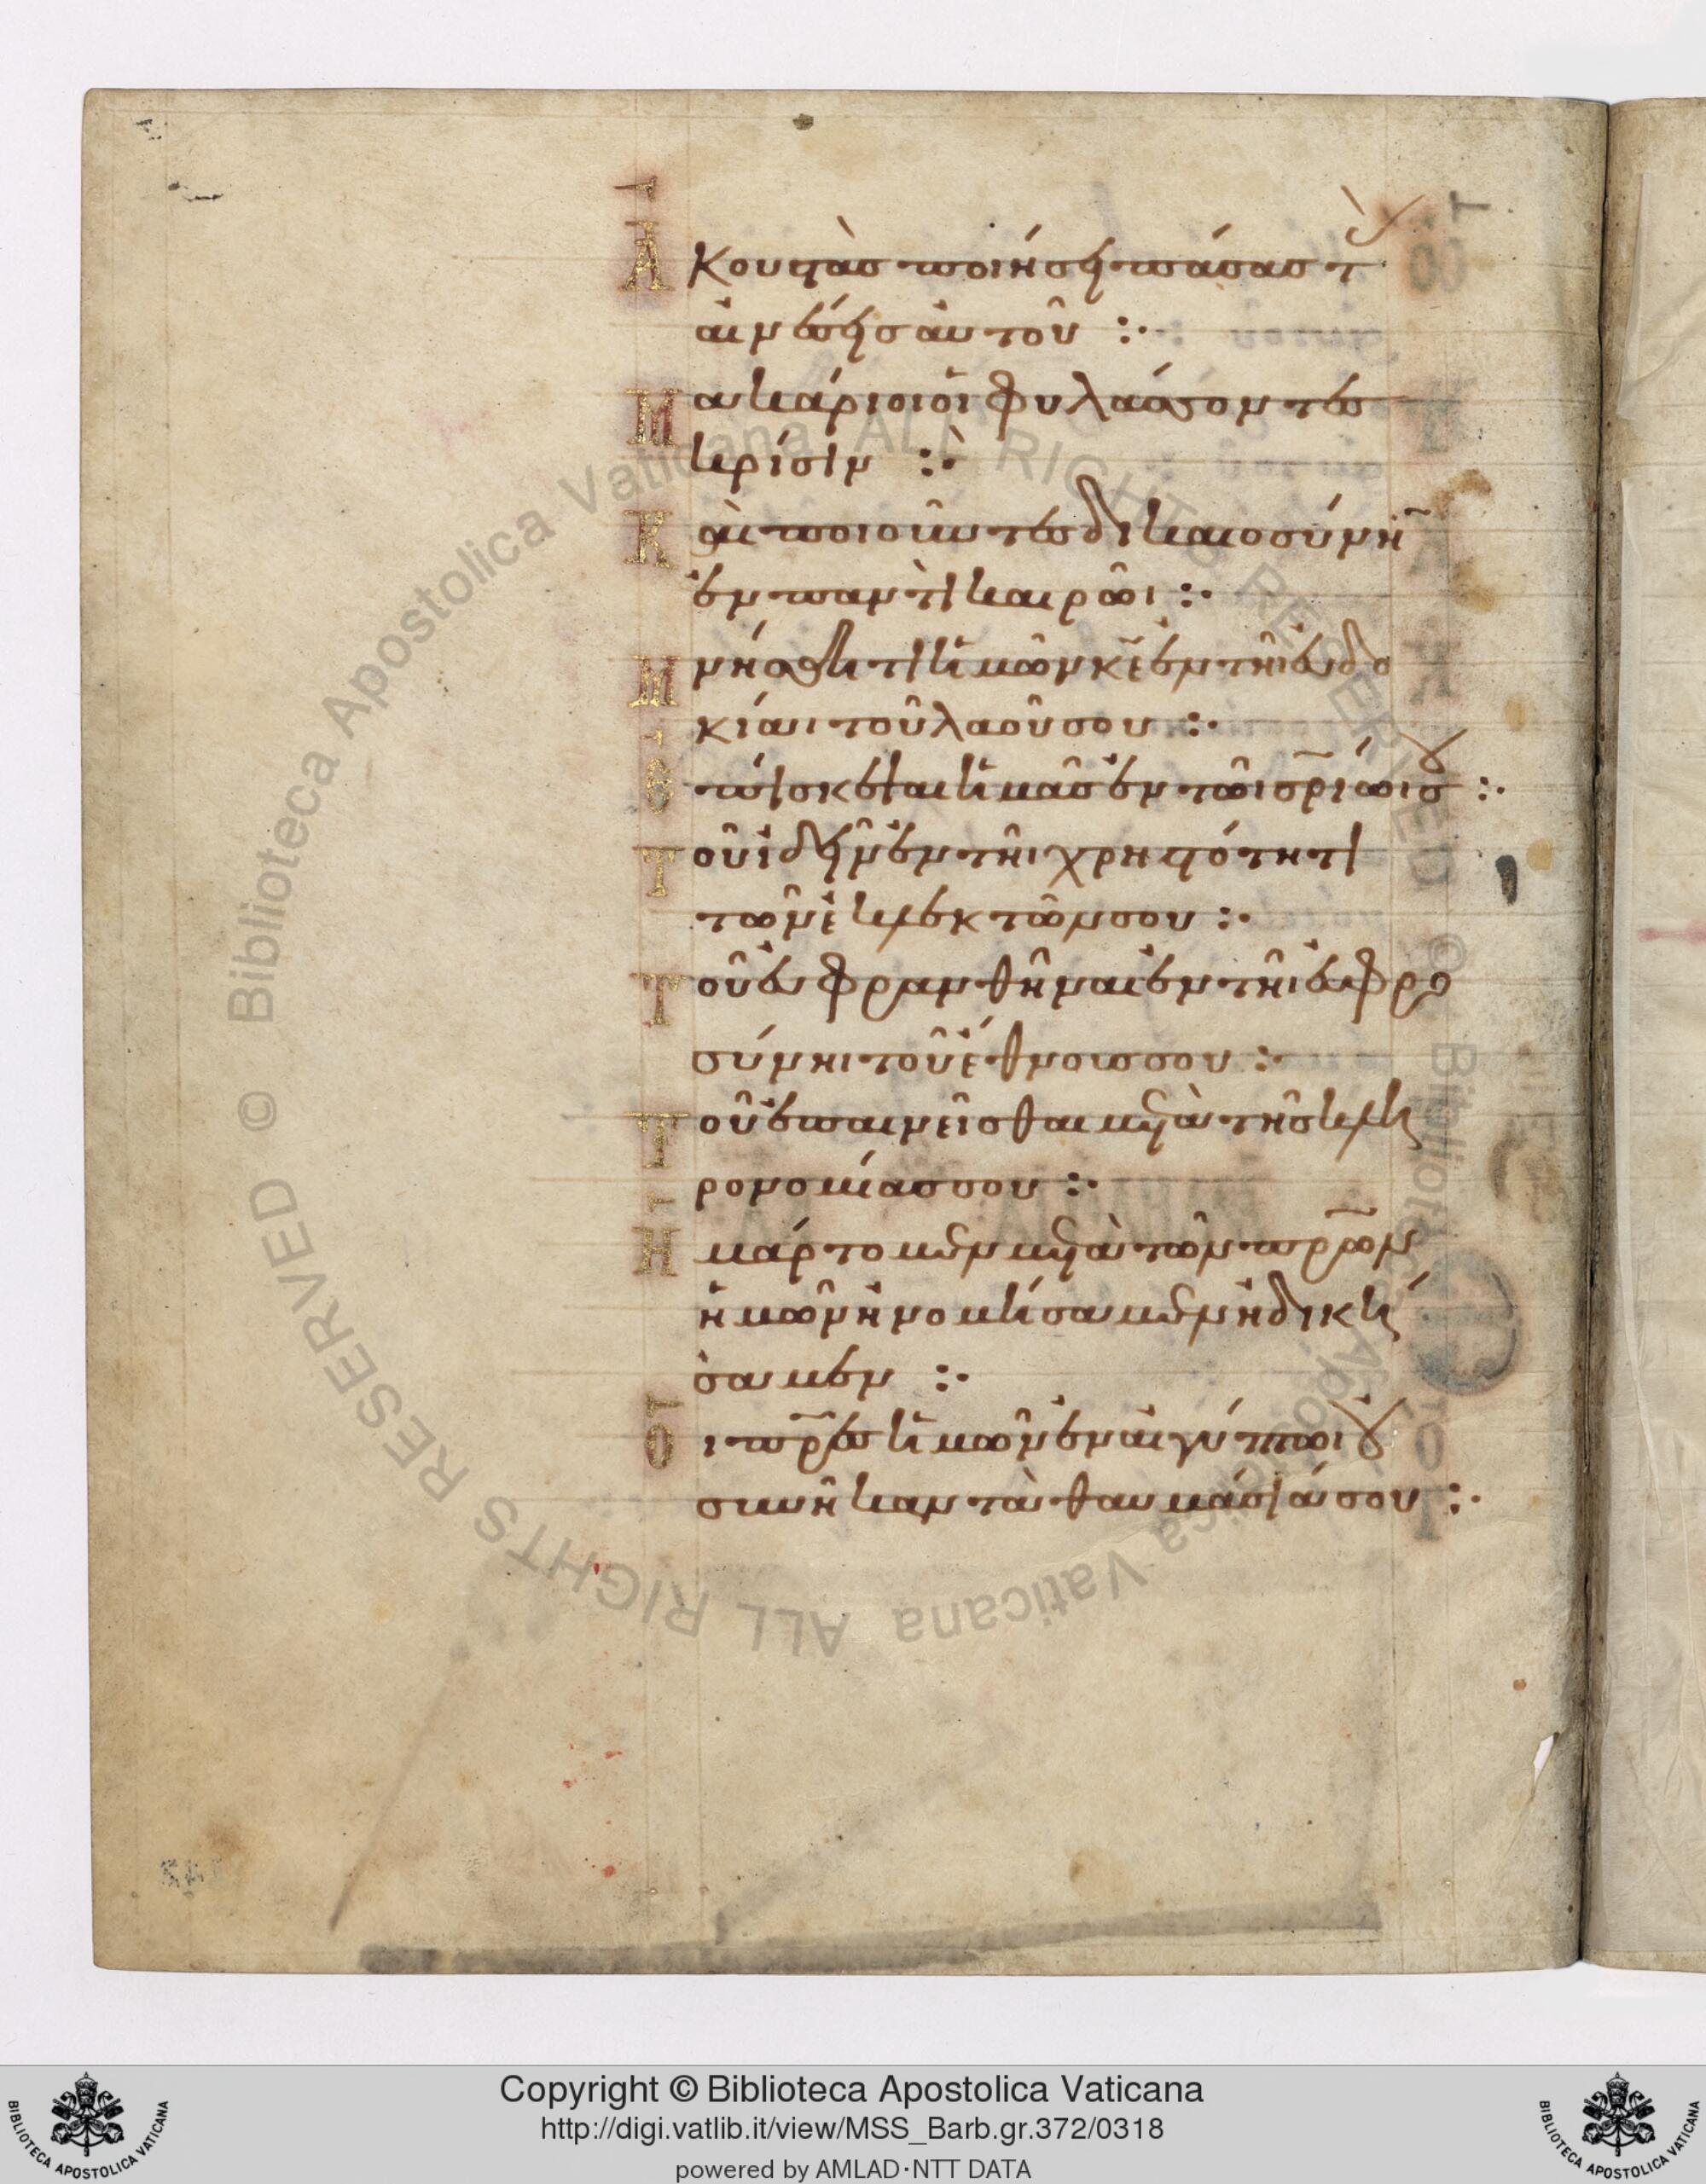 Ἀκουστὰς ποιήσει πάσας τὰς
αἰνέσεις αὐτοῦ :·
Μακάριοι οἱ φυλάσσοντες
κρίσιν :·
Καὶ ποιοῦντες δικαιοσύνην
ἐν παντὶ καιρῶι :·
Μνήσθητι ἡμῶν κ̅ε̅ ἐν τῆι εὐδο
κίαι τοῦ λαοῦ σου :·
Ἐπίσκεψαι ἡμᾶς ἐν τῶι σ̅ρ̅ίωι σου :·
Τοῦ ἰδεῖν ἐν τῆι χρηστότητι
τῶν ἐκλεκτῶν σου :·
Τοῦ εὐφρανθῆναι ἐν τῆι εὐφρο
σύνηι τοῦ ἔθνους σου :·
Τοῦ ἐπαινεῖσθαι μετὰ τῆς κλη
ρονομίας σου :·
Ἡμάρτομεν μετὰ τῶν π̅ρ̅ων
ἡμῶν ἠνομήσαμεν ἠδικήσαμεν :·
Οἱ π̅ρ̅ες ἡμῶν ἐν αἰγύπτωι οὐ
συνῆκαν τὰ θαυμάσιά σου :·
Copyright © Biblioteca Apostolica Vaticana
http://digi.vatlib.it/view/MSS_Barb.gr.372/0318
powered by AMLAD·NTT DATA
BIBLIOTECA APOSTOLICA VATICANA
BIBLIOTECA APOSTOLICA VATICANA
© Biblioteca Apostolica Vaticana ALL RIGHTS RESERVED © Biblioteca Apostolica Vaticana ALL RIGHTS RESERVED